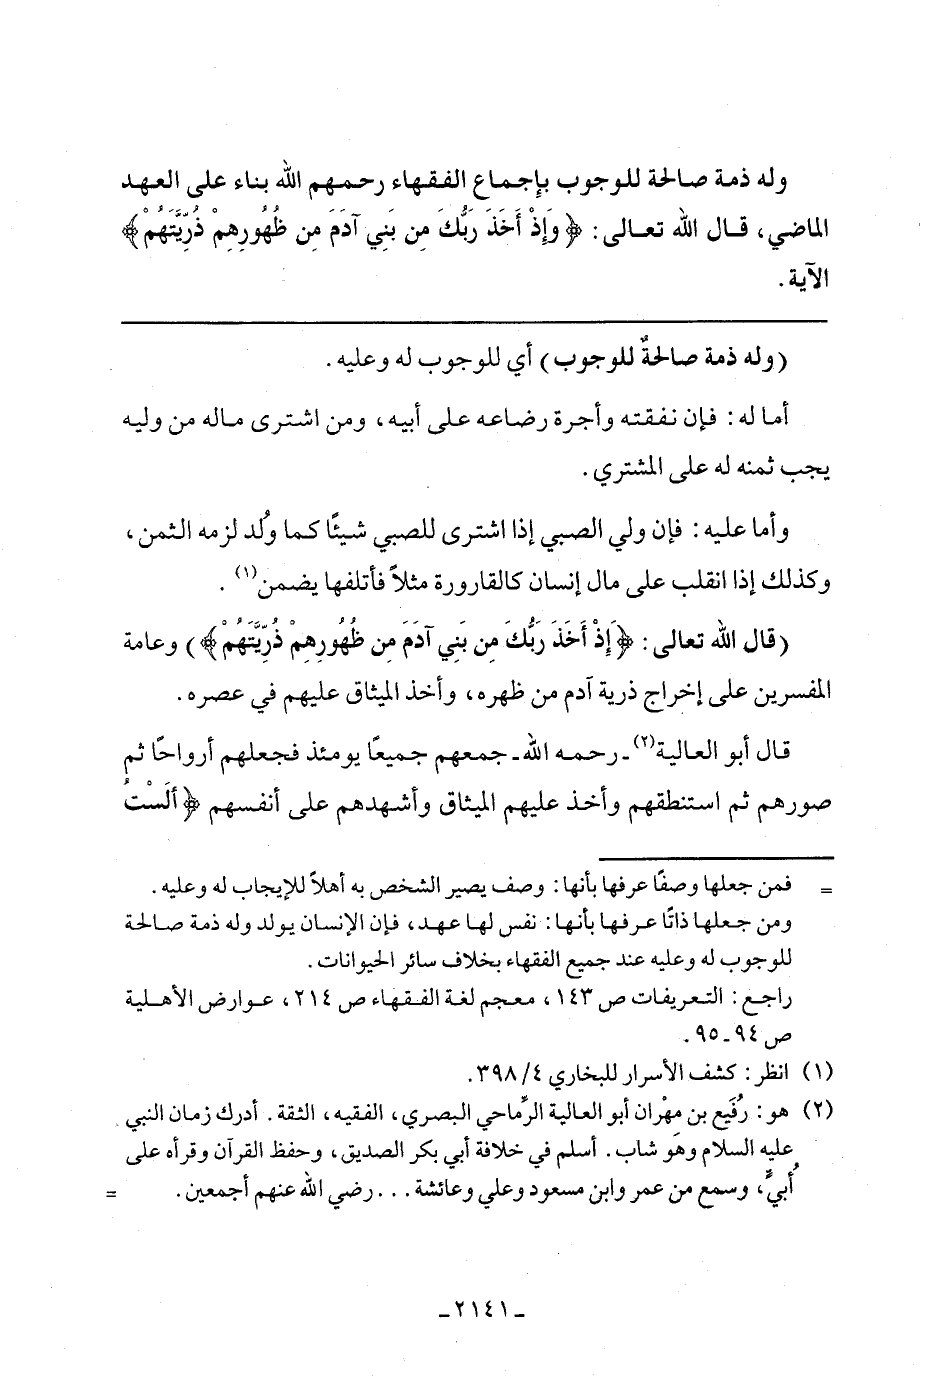 وله ذمة صالحة للوجوب بإجماع الفقهاء رحمهم الله بناء على العهد
الماضي، قال الله تعالى: ﴿وَإِذْ أَخَذَ رَبُّكَ مِن بَنِي آدَمَ مِن ظُهُورِهِمْ ذُرِّيَّتَهُمْ﴾
الآية.
(وله ذمة صالحةٌ للوجوب) أي للوجوب له وعليه.
أما له: فإن نفقته وأجرة رضاعه على أبيه، ومن اشترى ماله من وليه
يجب ثمنه له على المشتري.
وأما عليه: فإن ولي الصبي إذا اشترى للصبي شيئًا كما وُلد لزمه الثمن،
وكذلك إذا انقلب على مال إنسان كالقارورة مثلاً فأتلفها يضمن(١).
(قال الله تعالى: ﴿إِذْ أَخَذَ رَبُّكَ مِن بَنِي آدَمَ مِن ظُهُورِهِمْ ذُرِّيَّتَهُمْ﴾) وعامة
المفسرين على إخراج ذرية آدم من ظهره، وأخذ الميثاق عليهم في عصره.
قال أبو العالية(٢) ـ رحمه الله ـ جمعهم جميعًا يومئذ فجعلهم أرواحًا ثم
صورهم ثم استنطقهم وأخذ عليهم الميثاق وأشهدهم على أنفسهم ﴿أَلَسْتُ
= فمن جعلها وصفًا عرفها بأنها: وصف يصير الشخص به أهلاً للإيجاب له وعليه.
ومن جعلها ذاتًا عرفها بأنها: نفس لها عهد، فإن الإنسان يولد وله ذمة صالحة
للوجوب له وعليه عند جميع الفقهاء بخلاف سائر الحيوانات.
راجع: التعريفات ص ١٤٣، معجم لغة الفقهاء ص ٢١٤، عوارض الأهلية
ص ٩٤ـ٩٥.
(١) انظر: كشف الأسرار للبخاري ٤/٣٩٨.
(٢) هو: رُفَيع بن مِهْران أبو العالية الرِّماحي البصري، الفقيه، الثقة. أدرك زمان النبي
عليه السلام وهو شاب. أسلم في خلافة أبي بكر الصديق، وحفظ القرآن وقرأه على
أُبيٍّ، وسمع من عمر وابن مسعود وعلي وعائشة . . . رضي الله عنهم أجمعين. =
ـ ٢١٤١ ـ